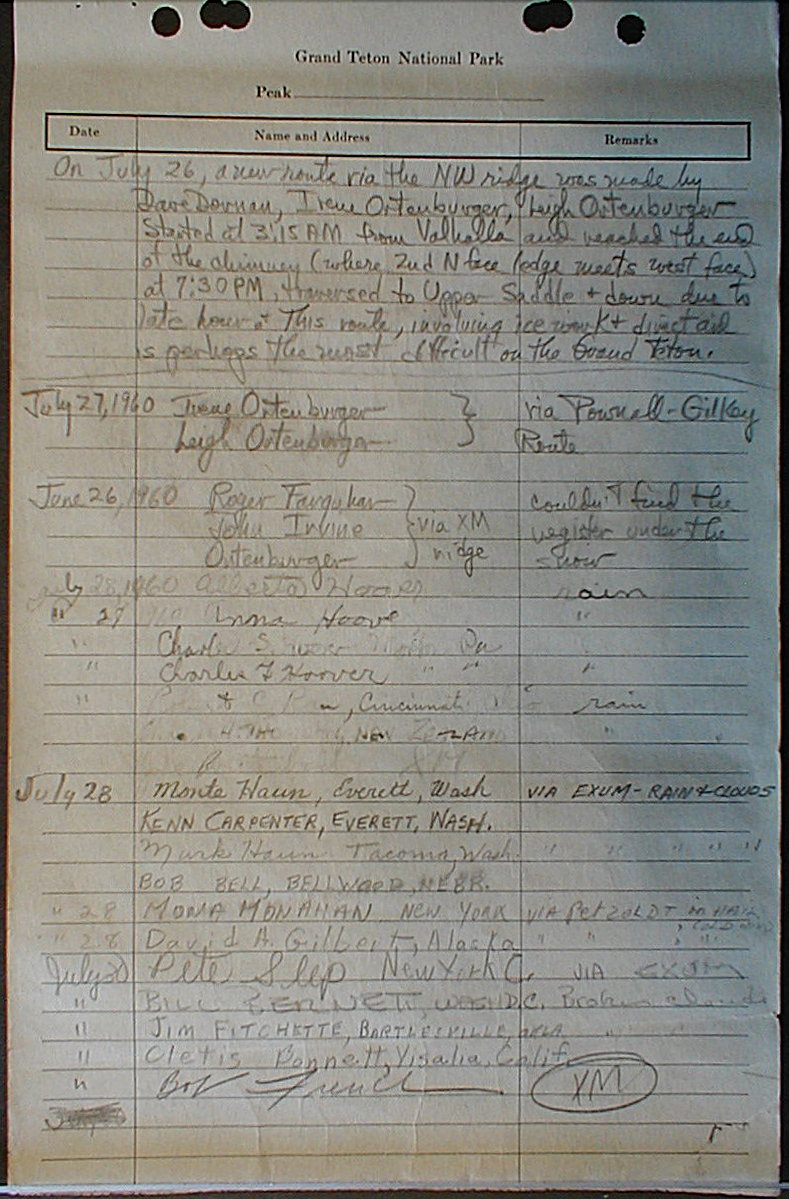 Grand Teton National Park
Peak
Date Name and Address Remarks
On July 26, a new route via the NW ridge was made by
Dave Dornan, Irene Ortenburger, Leigh Ortenburger
Started at 3:15 AM from Valhalla and reached the end
of the chimney (where 2nd N face ledge meets west face)
at 7:30 PM, traversed to Upper Saddle + down due to
late hour. This route, involving ice work + direct aid
is perhaps the most difficult on the Grand Teton.
July 27, 1960 Irene Ortenburger } via Pownall-Gilkey
Leigh Ortenburger Route
June 26, 1960 Roger Farquhar } couldn't find the
John Irvine via XM register under the
Ortenburger ridge snow
July 28, 1960 Alberta Hoover rain
" 27 Anna Hoover "
" Charles S. Pa
" Charles F Hoover " " "
" C. Cincinnati rain
New Zealand "
XM
July 28 Monte Haun, Everett, Wash VIA EXUM - RAIN & CLOUDS
KENN CARPENTER, EVERETT, WASH.
Mark Haun Tacoma, Wash. " " " " "
BOB BELL, BELLWOOD, NEBR.
" 28 MONA MONAHAN NEW YORK VIA PETZOLDT in HAIL
" 28 David A. Gilbert, Alaska " "
July Pete Slep New York C. VIA EXUM
" BILL BENNETT, WASH D.C. Broken clouds
" JIM FITCHETTE, BARTLESVILLE, OKLA "
" Cletis Bonnett, Visalia, Calif.
" Bob French XM